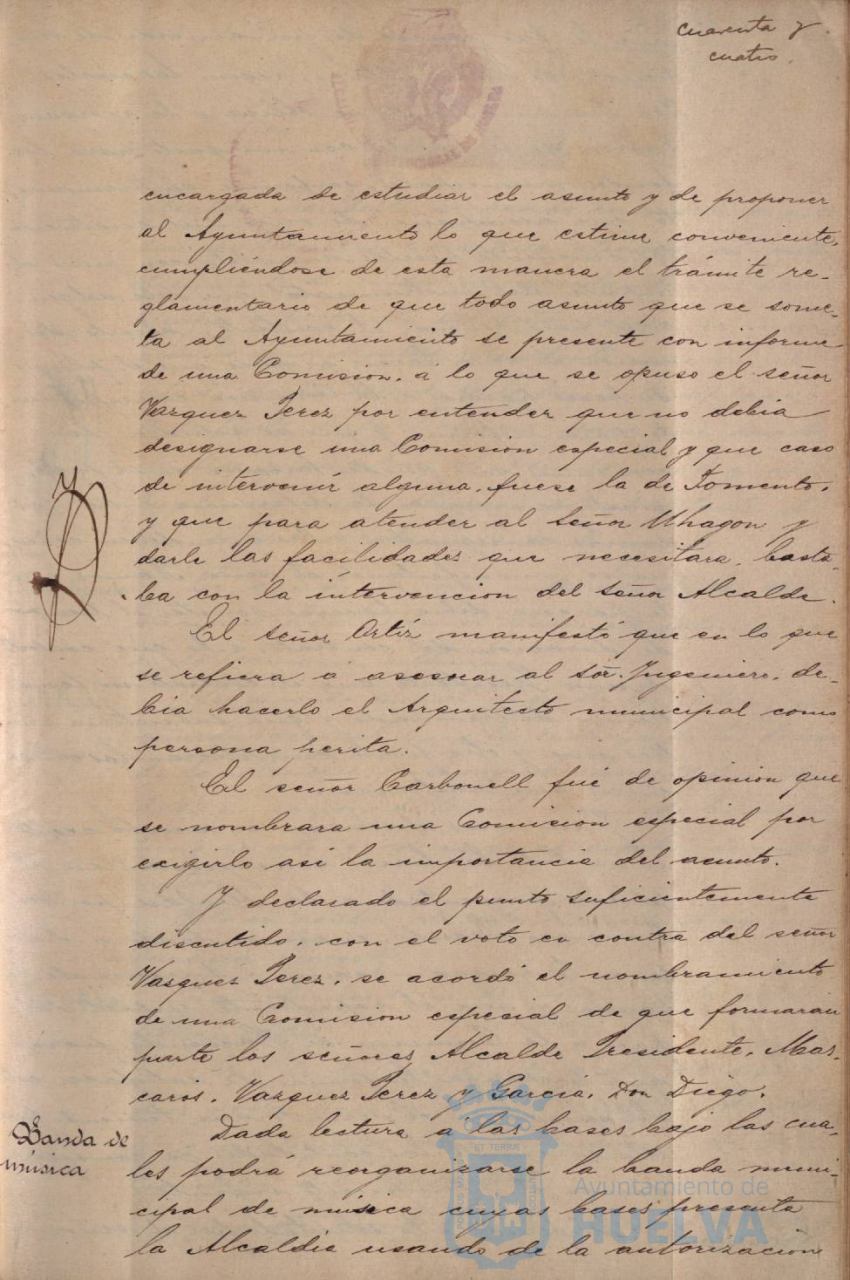 cuarenta y
cuatro.
encargada de estudiar el asunto y de proponer
al Ayuntamiento lo que estime conveniente,
cumpliéndose de esta manera el trámite re-
glamentario de que todo asunto que se some-
ta al Ayuntamiento se presente con informe
de una Comision. á lo que se opuso el señor
Vazquez Perez por entender que no debia
designarse una Comision especial y que caso
de intervenir alguna, fuese la de Fomento,
y que para atender al señor Uhagon y
darle las facilidades que necesitara, basta-
ba con la intervencion del señor Alcalde.
El señor Ortíz manifestó que en lo que
se refiera á asesorar al sór. Ingeniero, de-
bia hacerlo el Arquitecto municipal como
persona perita.
El señor Carbonell fué de opinion que
se nombrara una Comision especial por
exigirlo asi la importancia del asunto.
Y declarado el punto suficientemente
discutido, con el voto en contra del señor
Vasquez Perez, se acordó el nombramiento
de una Comision especial de que formaran
parte los señores Alcalde Presidente, Mas-
caros, Vazquez Perez y Garcia, Don Diego.
Banda de
música
Dada lectura á las bases bajo las cua-
les podrá reorganizarse la banda muni-
cipal de música cuyas bases presenta
la Alcaldia usando de la autorizacion
Ayuntamiento de
HUELVA